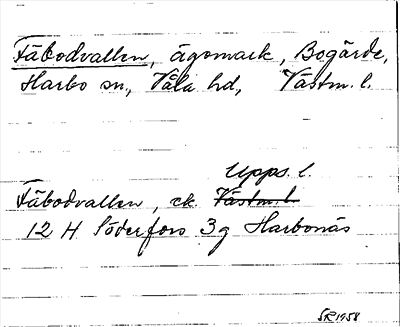 Fäbodvallen, ägomark, Bogärde,
Harbo sn, Våla hd, Västm. l.
Upps. l.
Fäbodvallen, ek. Västm. l.
12 H Söderfors 3g Harbonäs
SR 1958